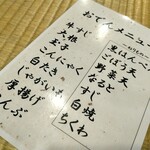 おでんメニュー
黒はんぺん
ごぼう天
野菜天
なると
すじ
白焼
ちくわ
牛すじ
大根
玉子
こんにゃく
白たき
じゃがいも
厚揚げ
こんぶ